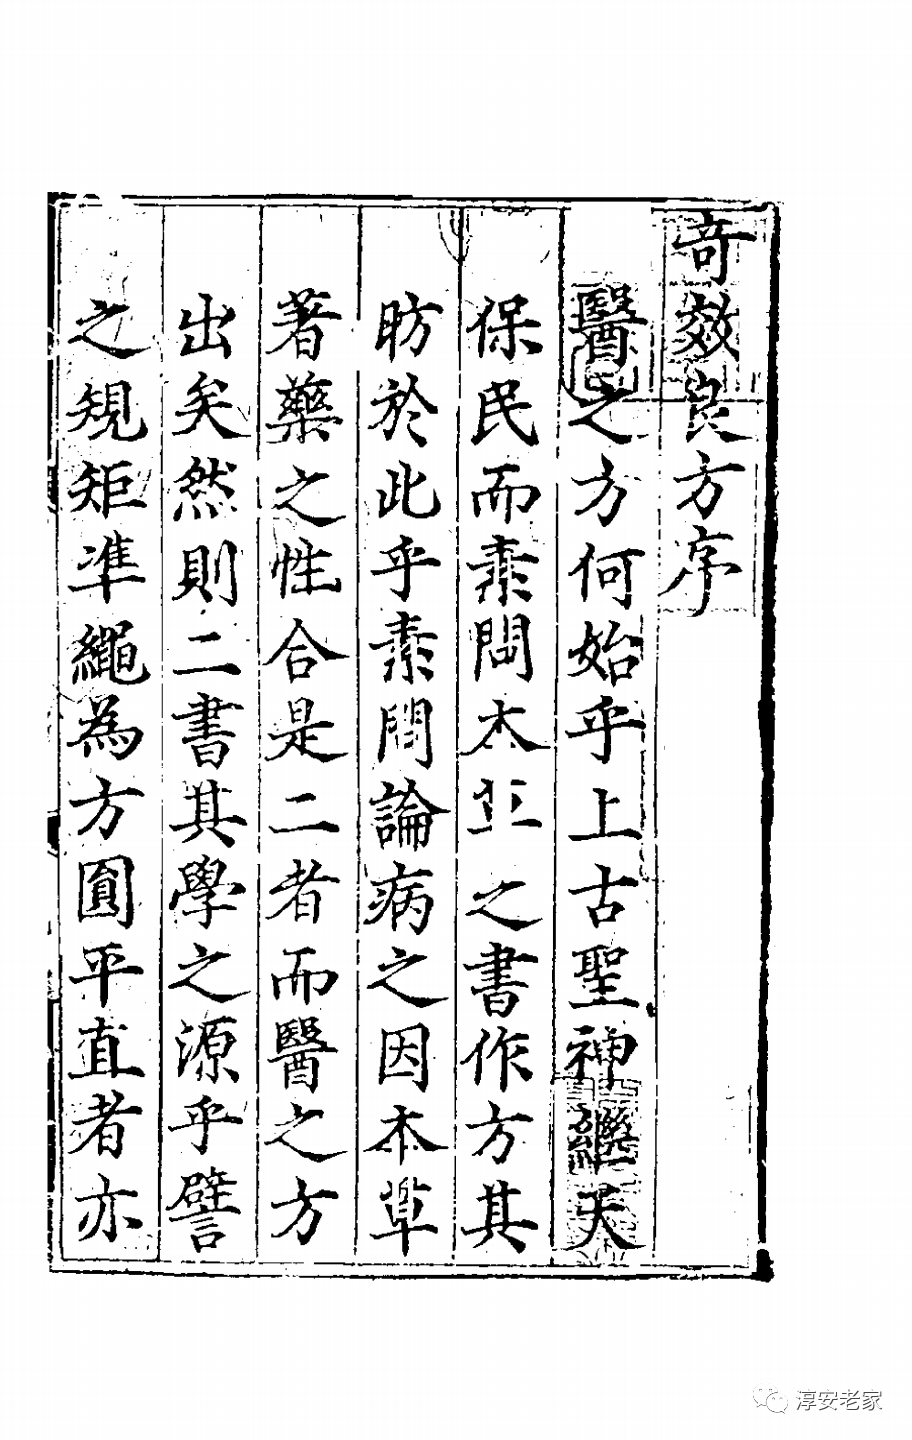 奇效良方序
醫之方何始乎上古聖神繼天
保民而素問本草之書作方其
昉於此乎素問論病之因本草
著藥之性合是二者而醫之方
出矣然則二書其學之源乎譬
之規矩準繩為方圓平直者亦
淳安老家